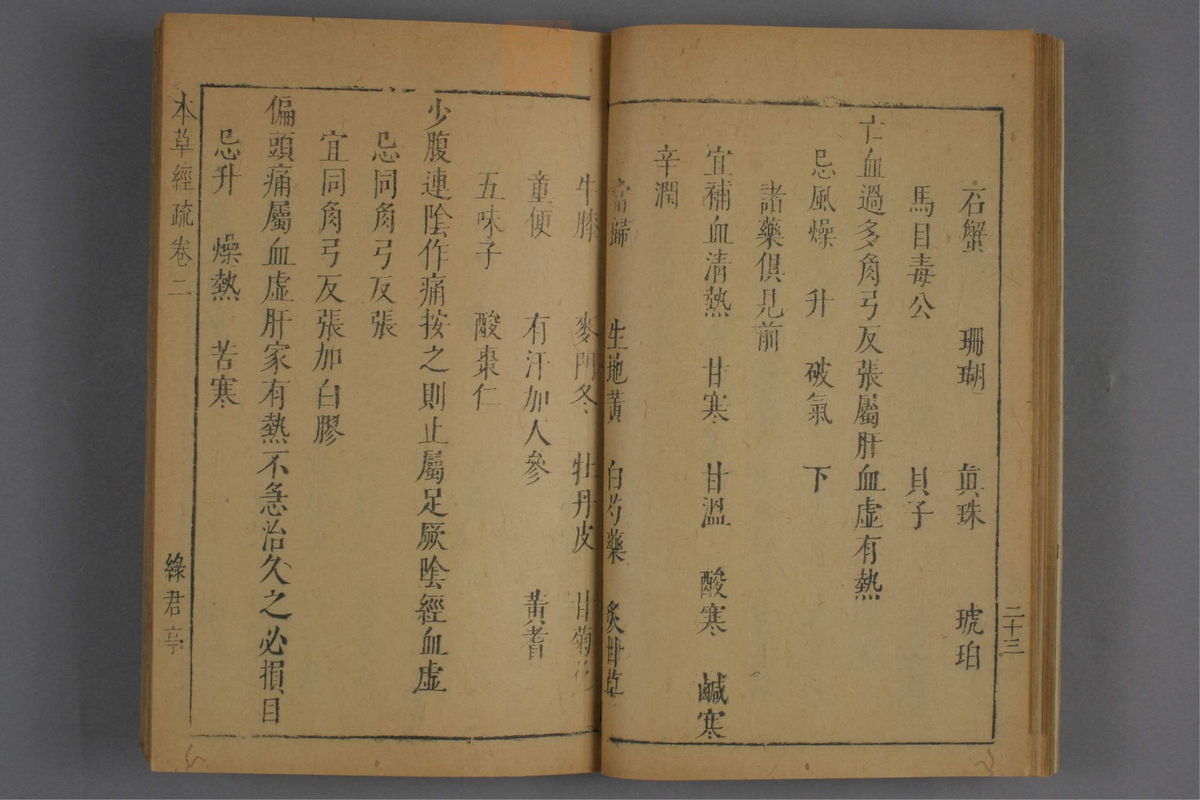 二十三
石蟹 珊瑚 眞珠 琥珀
馬目毒公 貝子
亡血過多角弓反張屬肝血虛有熱
忌風燥 升 破氣 下
諸藥俱見前
宜補血清熱 甘寒 甘溫 酸寒 鹹寒
辛潤
當歸 生地黃 白芍藥 炙甘草
牛膝 麥門冬 牡丹皮 甘菊花
童便 有汗加人參 黃耆
五味子 酸棗仁
少腹連陰作痛按之則止屬足厥陰經血虛
忌同角弓反張
宜同角弓反張加白膠
偏頭痛屬血虛肝家有熱不急治久之必損目
忌升 燥熱 苦寒
本草經疏卷二 綠君亭